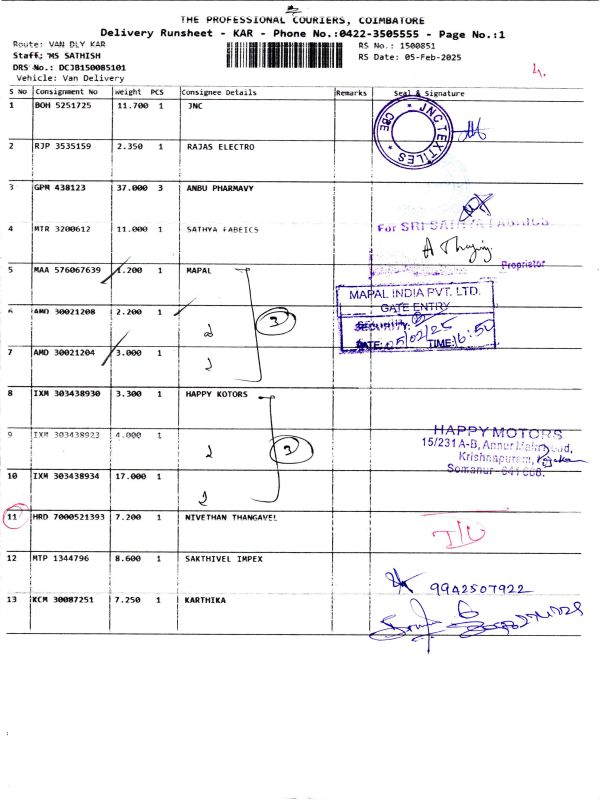 THE PROFESSIONAL COURIERS, COIMBATORE
Delivery Runsheet - KAR - Phone No.:0422-3505555 - Page No.:1
Route: VAN DLY KAR
RS No.: 1500851
Staff: MS SATHISH
RS Date: 05-Feb-2025
DRS No.: DCJB150085101
Vehicle: Van Delivery
4.
S No Consignment No weight PCS Consignee Details Remarks Seal & Signature
1 BOH 5251725 11.700 1 JNC
JNC TEXTILES * CBE *
2 RJP 3535159 2.350 1 RAJAS ELECTRO
3 GPM 438123 37.000 3 ANBU PHARMAVY
4 MTR 3200612 11.000 1 SATHYA FABEICS
For SRI SATHYA FABRICS
Proprietor
5 MAA 576067639 1.200 1 MAPAL
6 AMD 30021208 2.200 1
3
MAPAL INDIA PVT. LTD.
GATE ENTRY
SECURITY:
DATE: 05/02/25 TIME: 16:50
7 AMD 30021204 3.000 1
8 IXM 303438930 3.300 1 HAPPY KOTORS
9 IXM 303438923 4.000 1
3
HAPPY MOTORS
15/231 A-B, Annur Main Road,
Krishnapuram,
Somanur - 641 668.
10 IXM 303438934 17.000 1
11 HRD 7000521393 7.200 1 NIVETHAN THANGAVEL
12 MTP 1344796 8.600 1 SAKTHIVEL IMPEX
9942507922
13 KCM 30087251 7.250 1 KARTHIKA